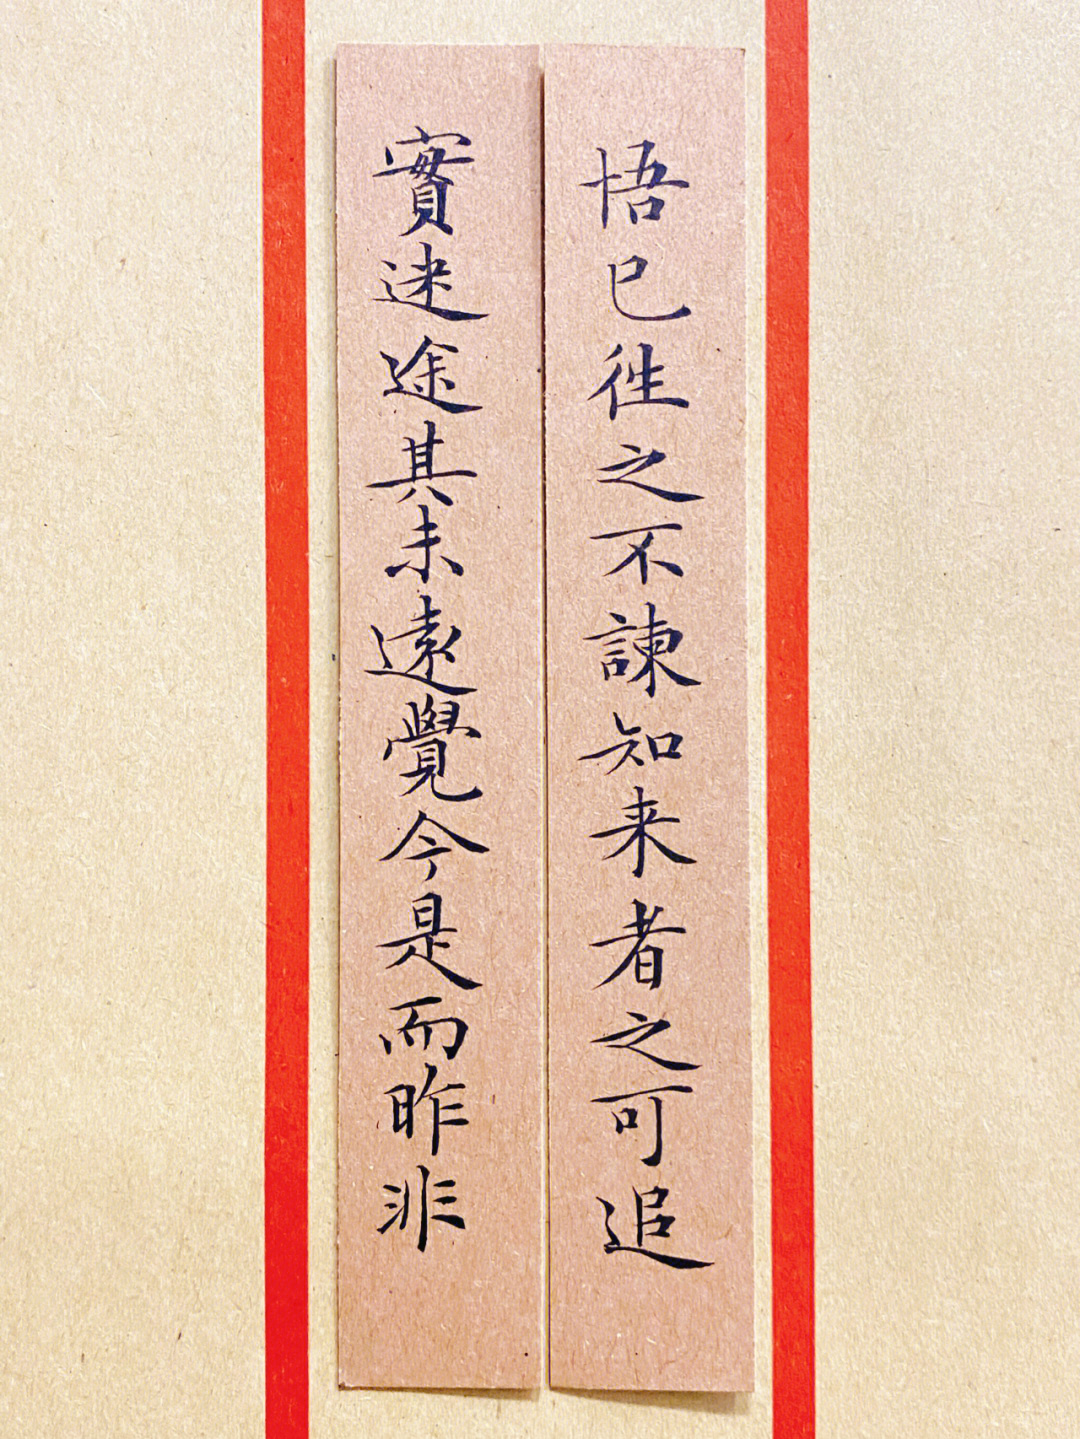 悟已徃之不諫知来者之可追
實迷途其未遠覺今是而昨非